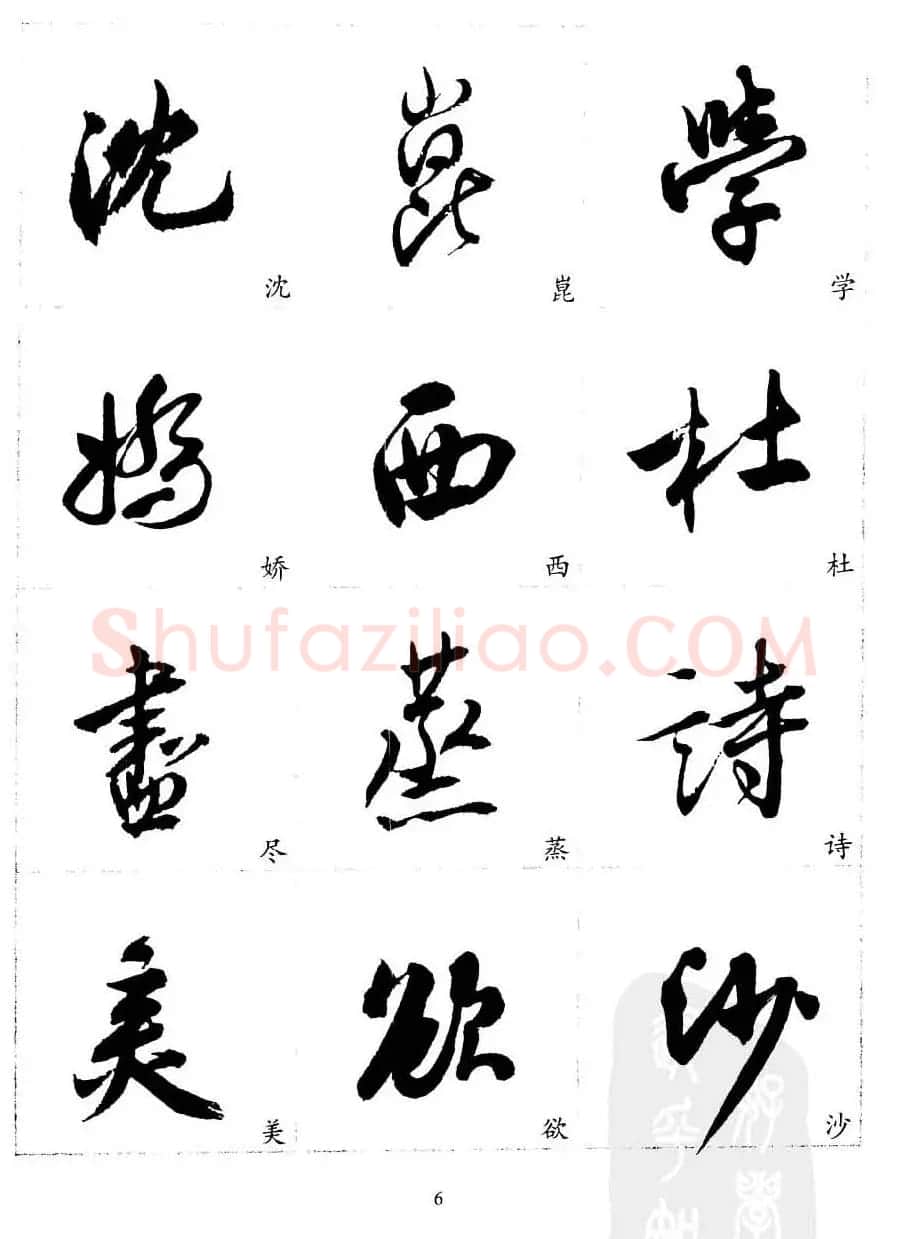 沈 崑 學
沈 崑 学
嬌 西 杜
娇 西 杜
Shufaziliao.COM
盡 蒸 詩
尽 蒸 诗
美 欲 沙
美 欲 沙
6